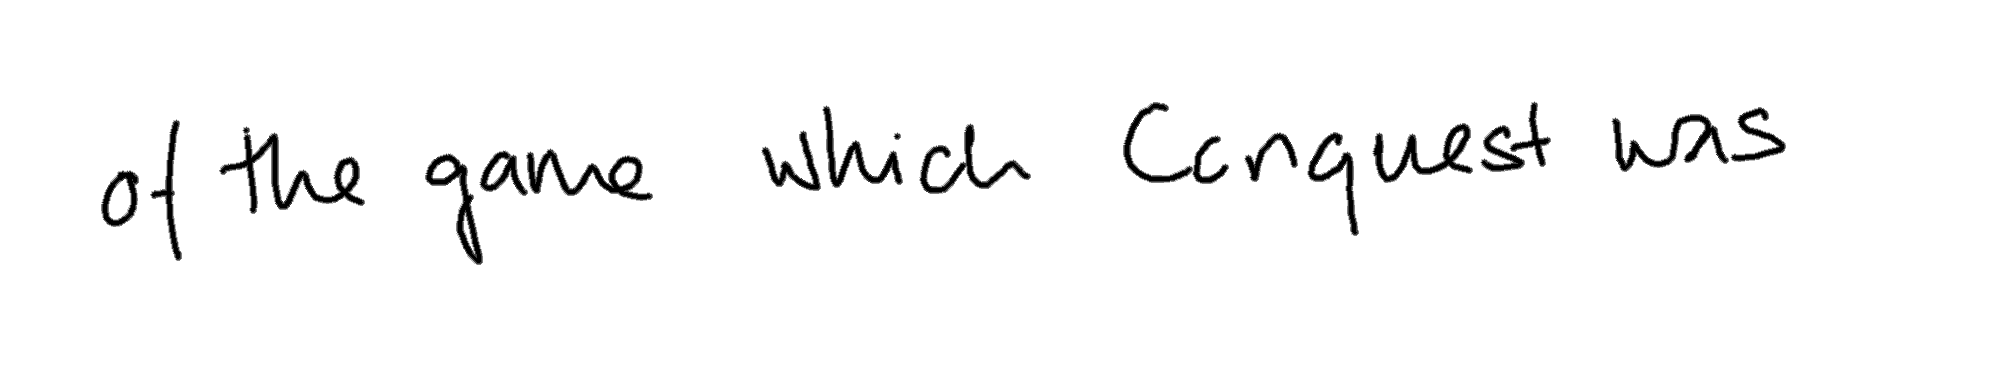 of the game which Conquest was